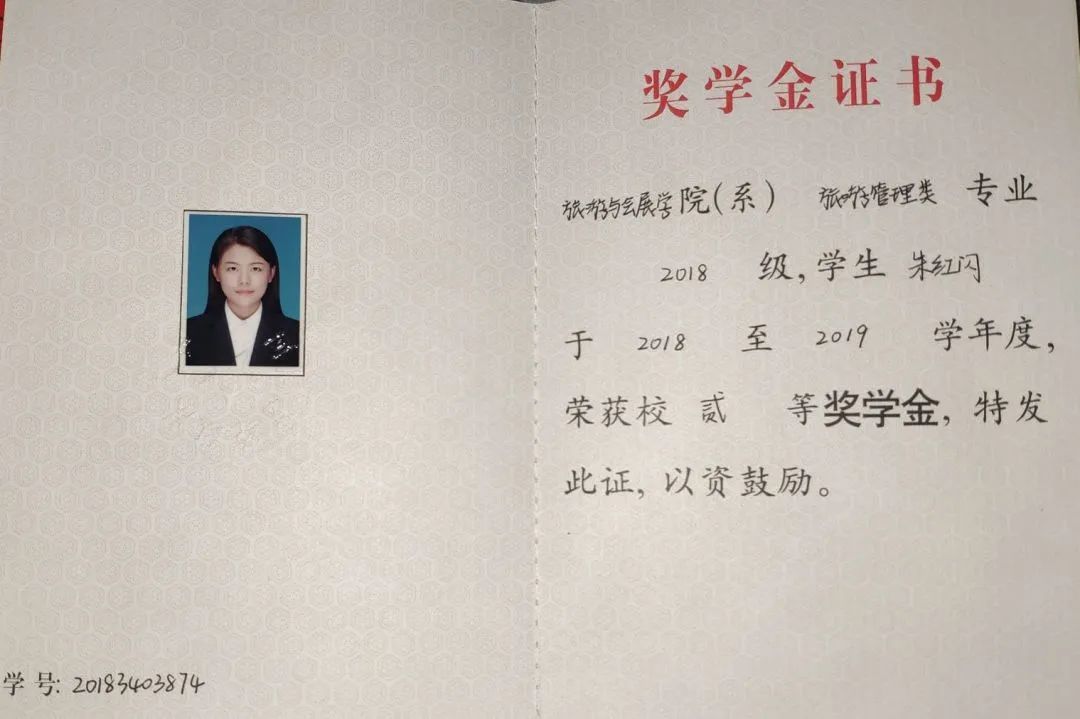 奖学金证书
旅游与会展学院(系) 旅游管理类 专业
2018 级,学生 朱红闪
于 2018 至 2019 学年度,
荣获校 贰 等奖学金,特发
此证,以资鼓励。
学号: 20183403874